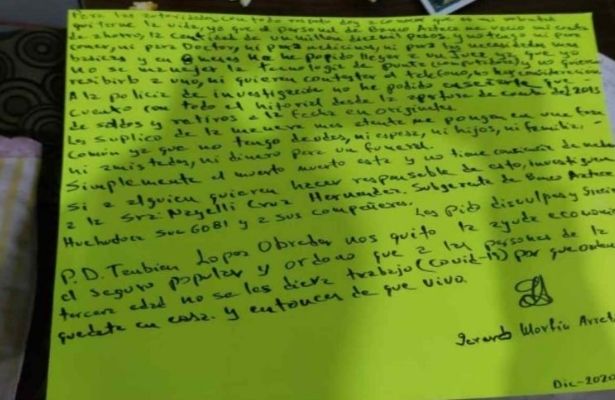 Para las autoridades, con todo respeto doy a conocer que es mi voluntad
quitarme la vida, ya que el personal de Banco Azteca me vacio mi cuenta
de ahorro, la cantidad de un millon de mil pesos y no tengo ni para
comer, ni para Doctor, ni para medicinas, ni para las necesidades mas
basicas y en meses e he podido llegar a un Juez ya que yo
no se manejar la tecnologia de punta (computadora) y no quieren
recibirlo a uno, ni quieren contestar el telefono, no hay consideracion
A la policia de investigación no he podido ya que
cuento con todo el hitorial desde la apertura de cuenta del 2015
de saldos y retiros a la fecha en originales
Les Suplico de la manera mas atenta me pongan en una fosa
Comun ya que no tengo deudos, ni esposa, ni hijos, ni familia,
ni amistades, ni dinero para un funeral.
Simplemente el muerto muerto esta y no tiene conciencia de nada
si a alguien quieren hacer responsable de esto, investiguen
a la Srta: Nayelli Cruz Hernandez, Subgerente de Banco Azteca
Huehuetoca Suc 6081 y a sus compañeros.
Les pido disculpas y
P.D. Tambien Lopez Obrador nos quito la ayuda economica
el seguro popular y ordeno que a las personas de la
tercera edad no se les diera trabajo (covid-19) por que
quedate en casa. y entonces de que vivo.
Gerardo
Dic-2020